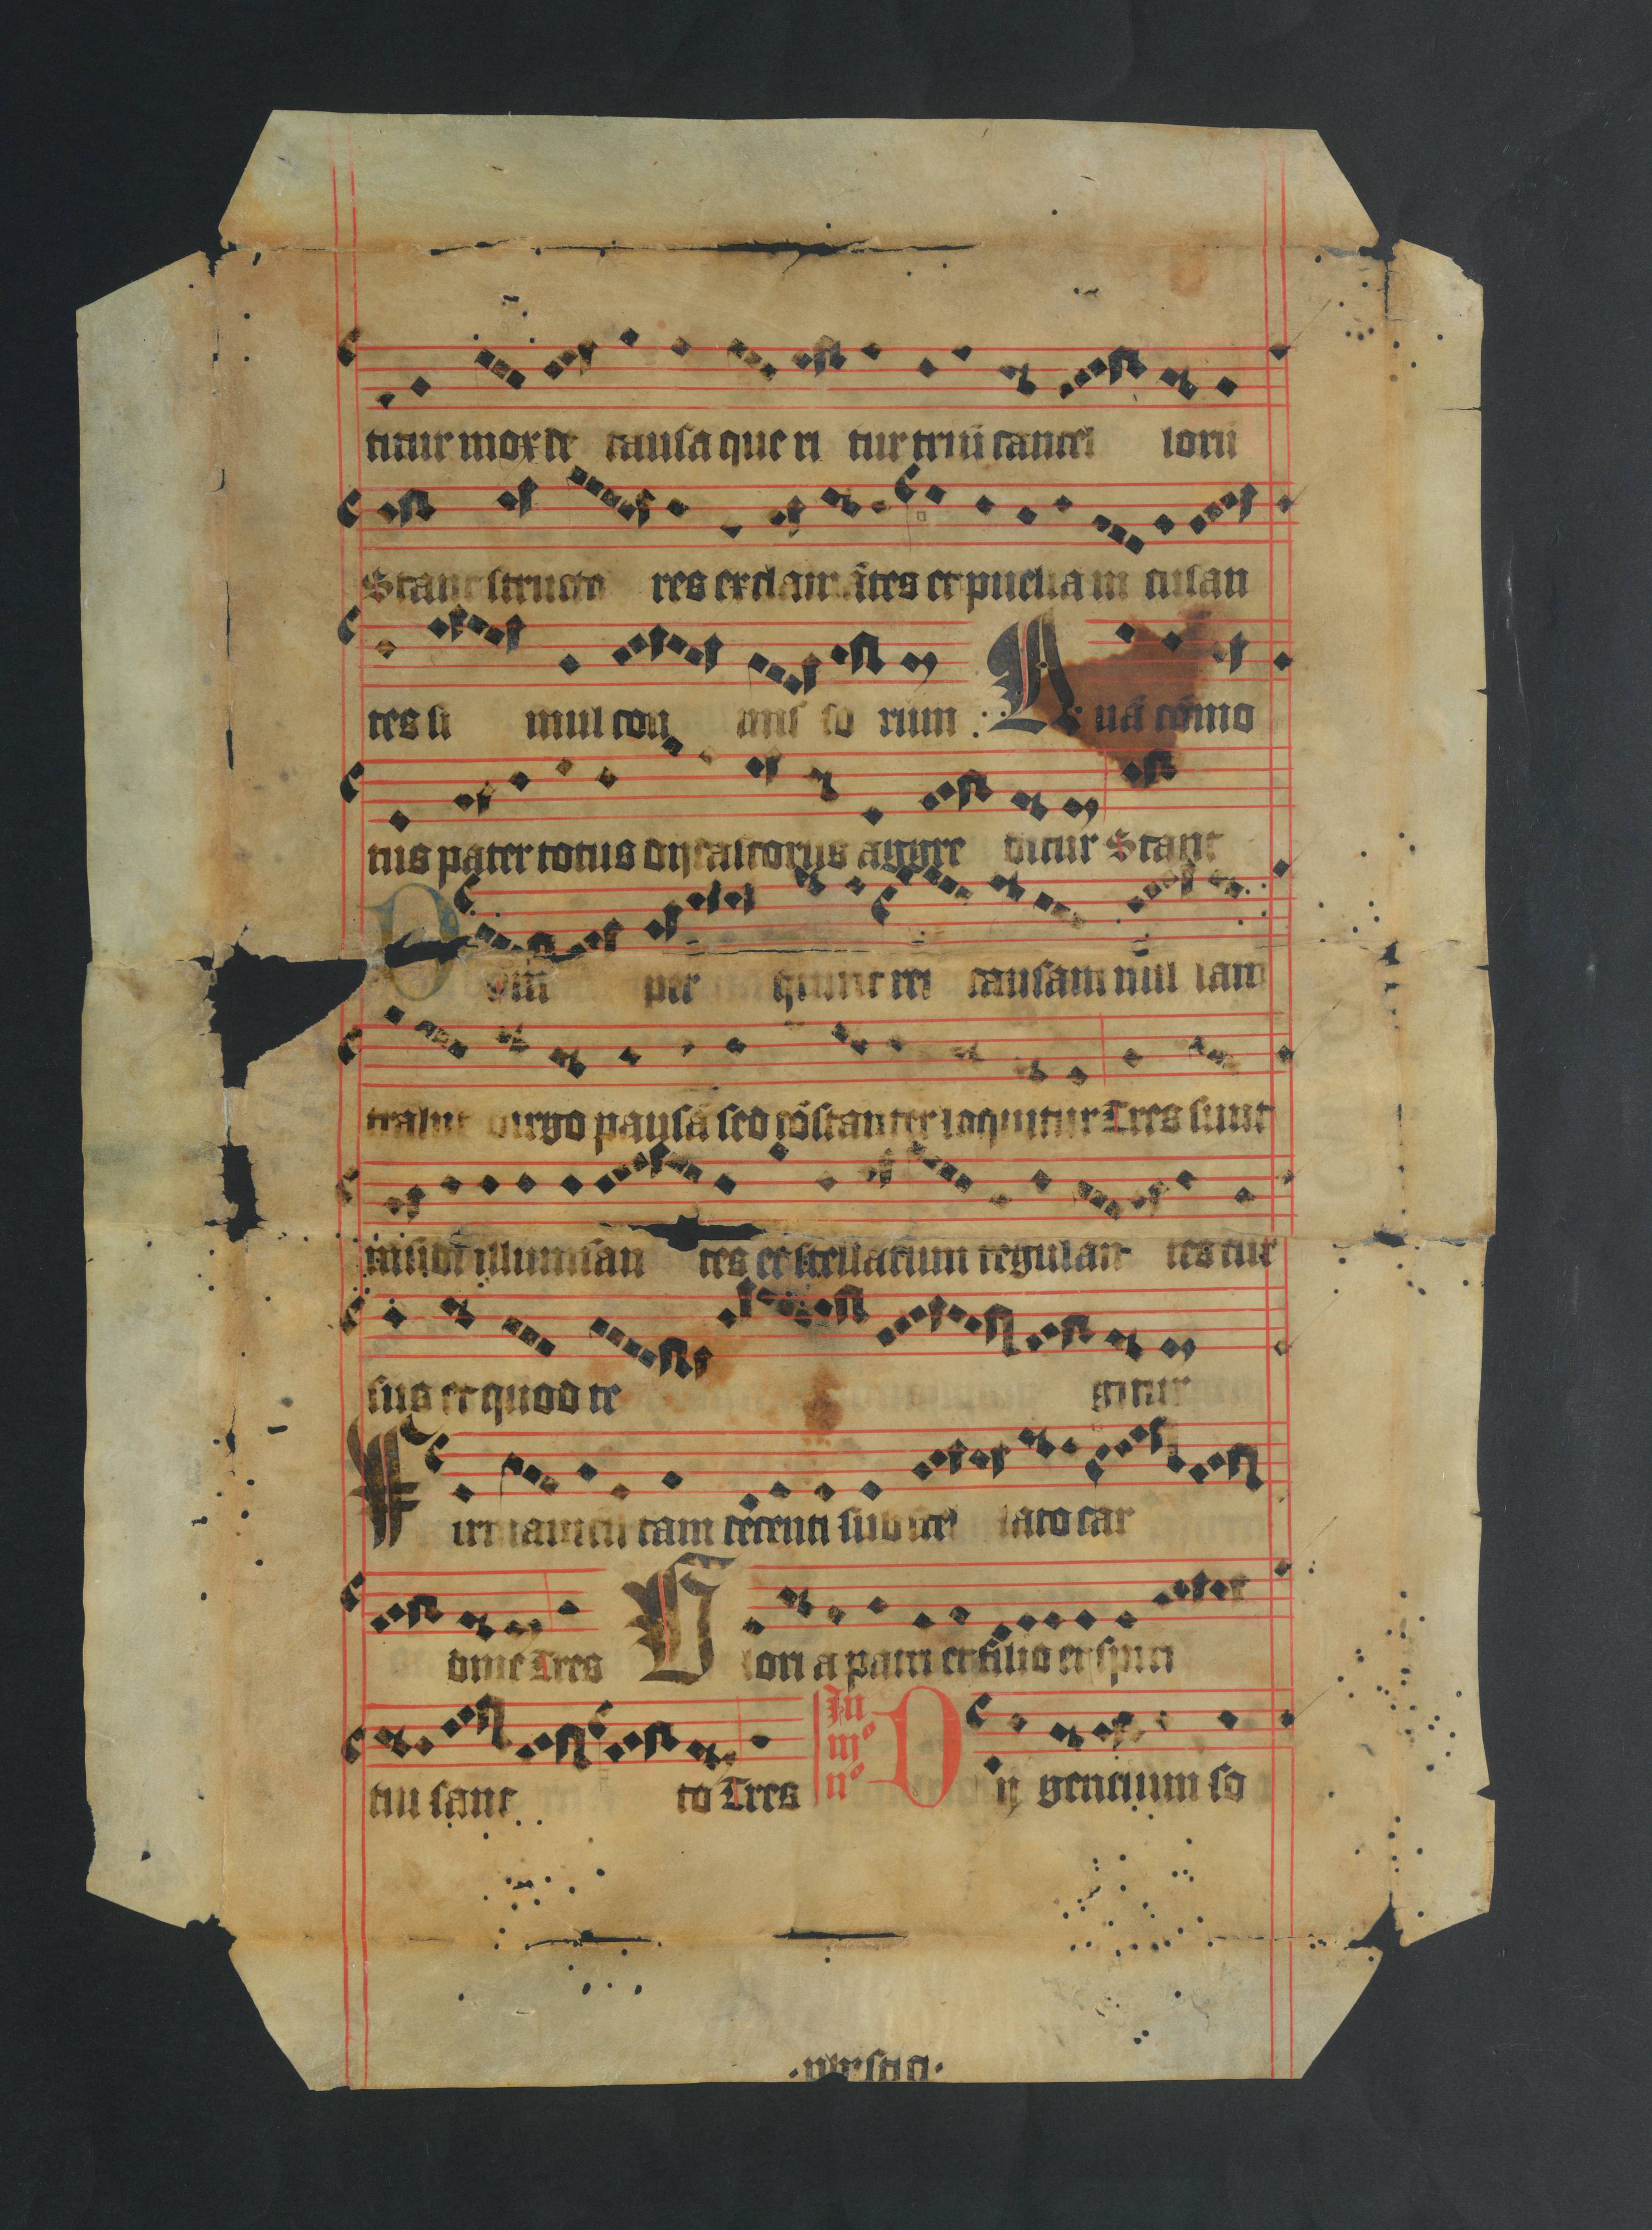 titur mox et causa que ri tur triū cancel lorū
Stant structo res exclamātes et puellam culan
tes si mul con so rum Quā cōmo
tus pater totus dys castorijs aggre ditur Stant
per quunt rei causam nul lam
trahit virgo pausā sed cōstanter loquitur Tres sunt
illuminan tes et stellarium regulan tes cur
sus et quod te gitur
tam recenti sub celato car
dine Tres Glori a patri et filio et spiri
tui sanc to Tres In iijº nº Dij gentium so